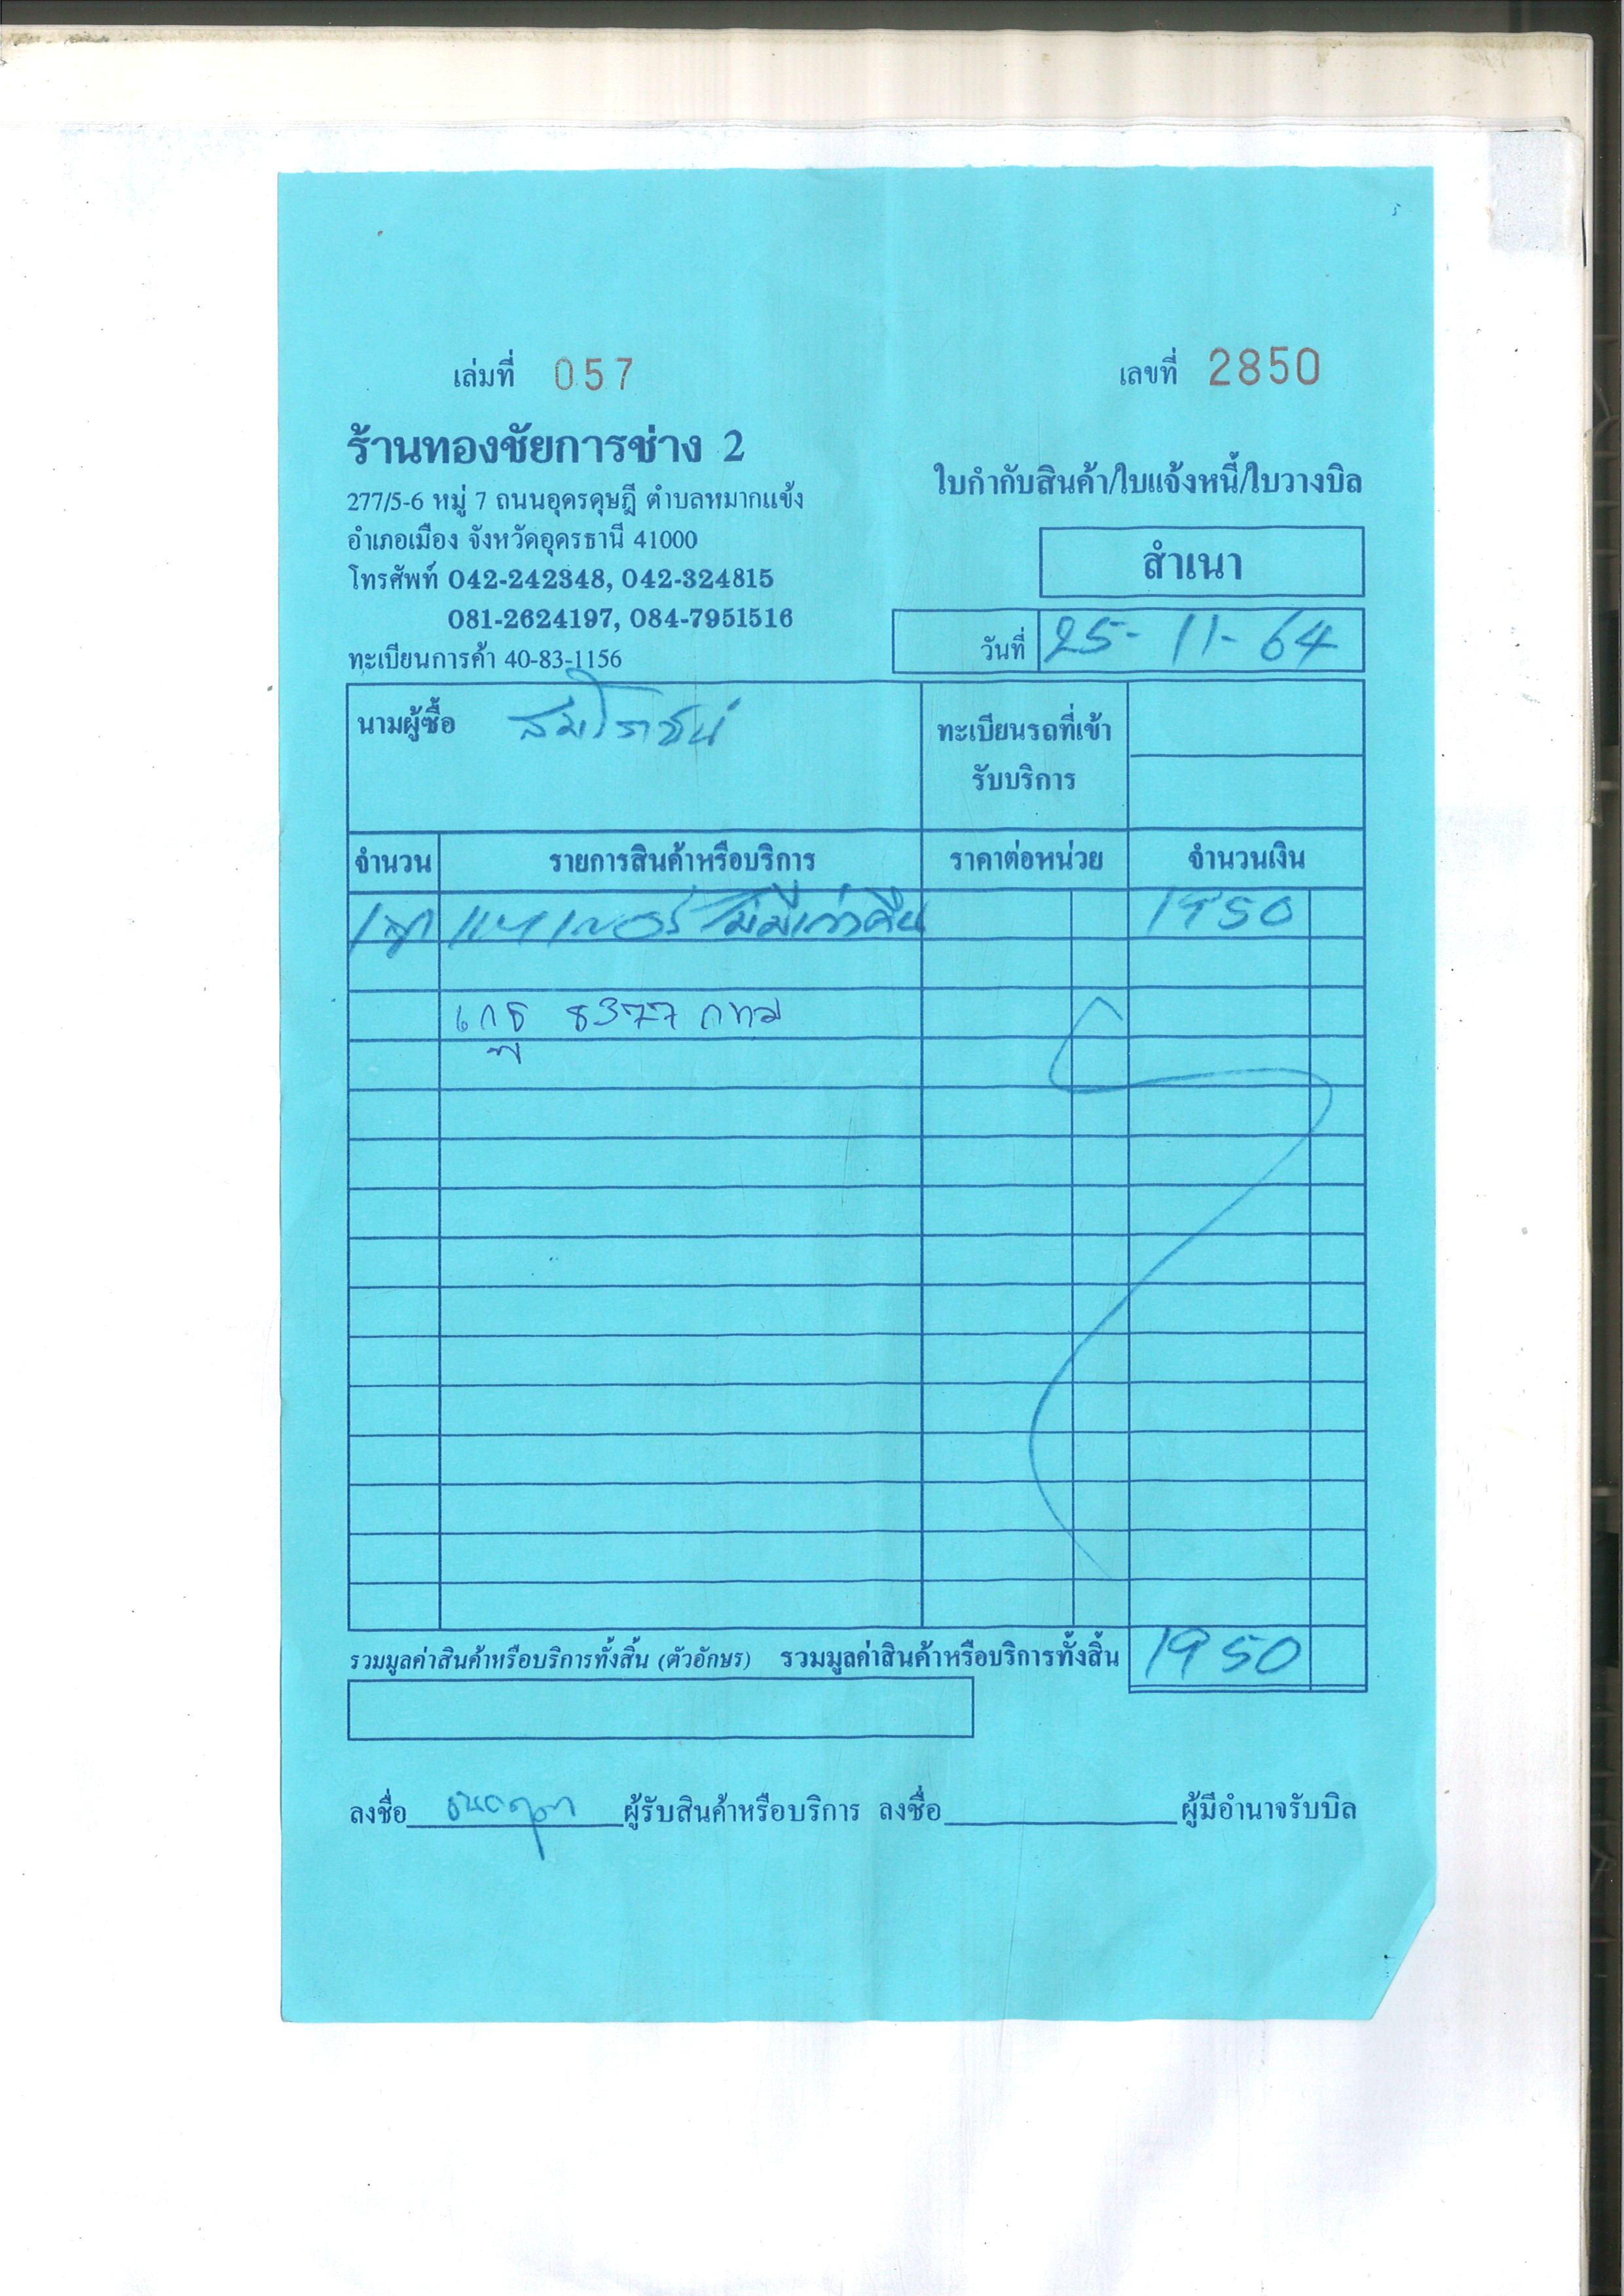 เล่มที่ 057
เลขที่ 2850
ร้านทองชัยการช่าง 2
277/5-6 หมู่ 7 ถนนอุดรดุษฎี ตำบลหมากแข้ง
อำเภอเมือง จังหวัดอุดรธานี 41000
โทรศัพท์ 042-242348, 042-324815
081-2624197, 084-7951516
ทะเบียนการค้า 40-83-1156
ใบกำกับสินค้า/ใบแจ้งหนี้/ใบวางบิล
สำเนา
วันที่ 25-11-64
นามผู้ซื้อ
ทะเบียนรถที่เข้า
รับบริการ
จำนวน รายการสินค้าหรือบริการ ราคาต่อหน่วย จำนวนเงิน
ไม่มีเก่าคืน 1950
8377 กทม
รวมมูลค่าสินค้าหรือบริการทั้งสิ้น (ตัวอักษร) รวมมูลค่าสินค้าหรือบริการทั้งสิ้น 1950
ลงชื่อ ผู้รับสินค้าหรือบริการ ลงชื่อ ผู้มีอำนาจรับบิล